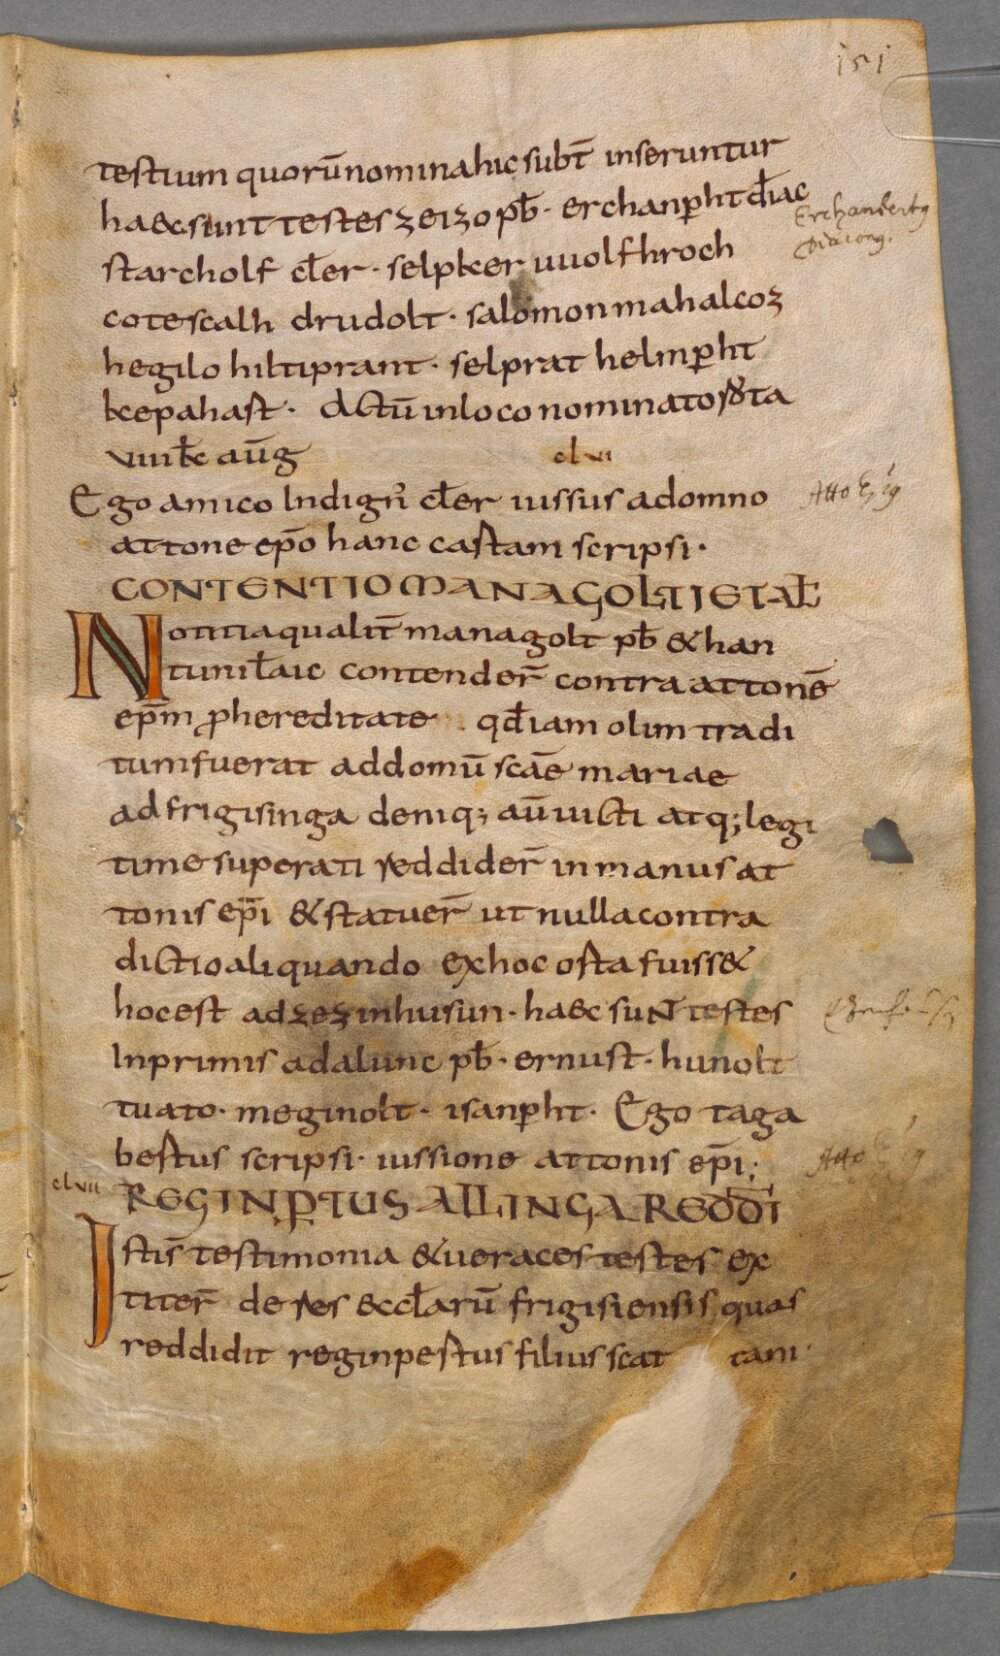 151
testium quorū nomina hic subt̄ inseruntur
haec sunt testes zeizo pb̄ · erchanp̱ht d̄iac
Erchanbert9 Diacon9.
starcholf cl̄er · selpker uuolfhroch
cotescalh drudolt · salomon mahalcoz
hegilo hiltiprant · selprat helmp̱ht
kepahast · actū in loco nominato
viiii kł aūg
clvi
Ego amico Indign̄ cl̄er iussus a domno
Atto
attone ep̄o hanc castam scripsi ·
CONTENTIO MANAGOLTI ET AL̄
Notitia qualit̄ managolt pb̄ & han
tuni l̄aic contender̄ contra attonē
ep̄m ꝓ hereditate qd̄ iam olim tradi
tum fuerat ad domū scāe mariae
ad frigisinga deniq; aū uicti atq; legi
time superati reddider̄ in manus at
tonis ep̄i & statuer̄ ut nulla contra
dictio aliquando ex hoc osta fuiss&
hoc est ad zez in husun · haec suNT testes
Inprimis adalunc pb̄ · ernust · hunolt
tuato · meginolt · isanp̱ht · Ego taga
bestus scripsi · iussione attonis ep̄i;
Atto
clvii
REGINP̱TUS ALLINGA REDD̄I
Istīs testimonia & ueraces testes ex
titer̄ de res eccl̄arū frigisiensis quas
reddidit reginpestus filius scat tam